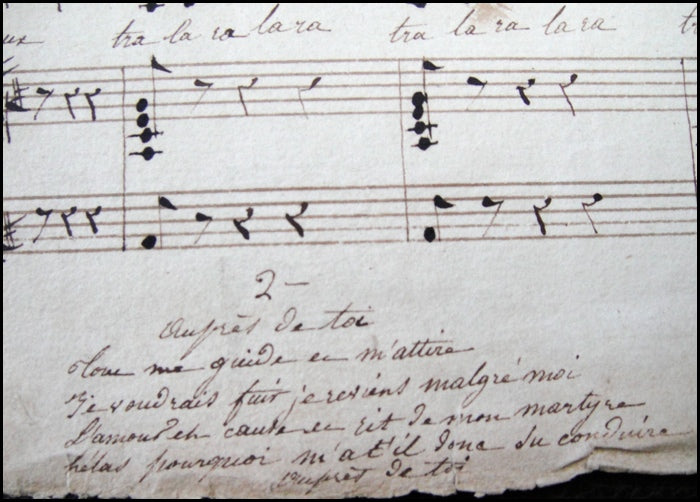 tra la ra la ra tra la ra la ra
2
Auprès de toi
Tout me guide et m'attire
Je voudrais fuir je reviens malgré moi
L'amour en cause et rit de mon martyre
hélas pourquoi m'at'il donc su conduire
Auprès de toi